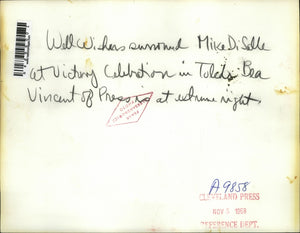 Well Wishers surround Mike DiSalle
at Victory Celebration in Toledo. Bea
Vincent of Press, is at extreme right.
A9858
CLEVELAND PRESS
NOV 5 1958
REFERENCE DEPT.